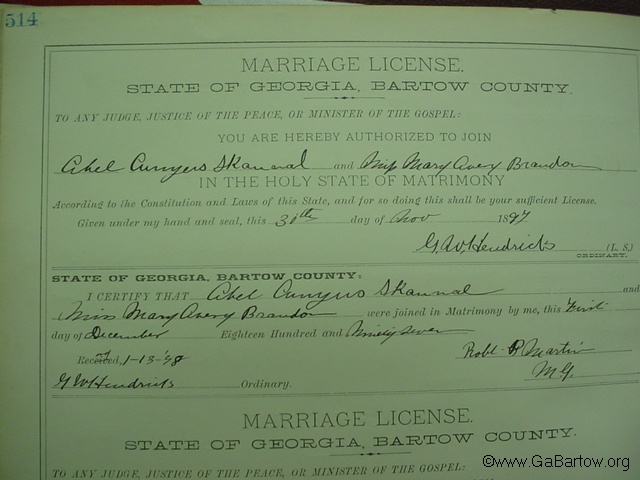 514
MARRIAGE LICENSE.
STATE OF GEORGIA, BARTOW COUNTY.
TO ANY JUDGE, JUSTICE OF THE PEACE, OR MINISTER OF THE GOSPEL:
YOU ARE HEREBY AUTHORIZED TO JOIN
Abel Cunyus Skannal and Miss Mary Avery Brandon
IN THE HOLY STATE OF MATRIMONY
According to the Constitution and Laws of this State, and for so doing this shall be your sufficient License.
Given under my hand and seal, this 30th day of Nov 1897
G.W. Hendricks (L. S.)
ORDINARY.
STATE OF GEORGIA, BARTOW COUNTY:
I CERTIFY THAT Abel Cunyus Skannal and
Miss Mary Avery Brandon were joined in Matrimony by me, this First
day of December Eighteen Hundred and Ninety seven
Robt. P. Martin
Received, 1-13-'98
M G.
G W Hendricks Ordinary.
MARRIAGE LICENSE.
STATE OF GEORGIA, BARTOW COUNTY.
TO ANY JUDGE, JUSTICE OF THE PEACE, OR MINISTER OF THE GOSPEL:
©www.GaBartow.org